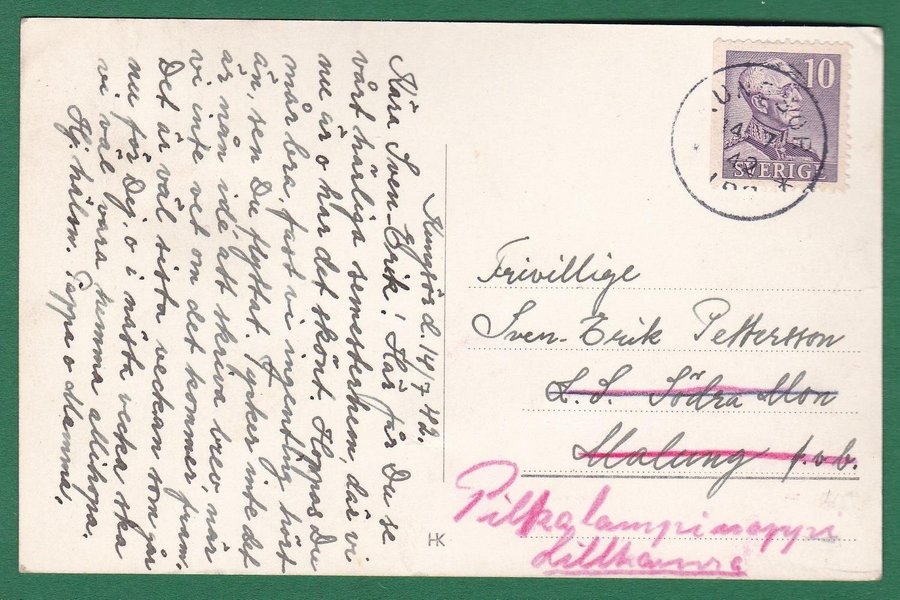 Kungsör d. 14/7 42.
Kära Sven-Erik! Här får Du se
vårt härliga semesterhem, där vi
nu är o har det skönt. Hoppas Du
mår bra, fast vi ingenting hört
än, sen Du flyttat. Tycker inte det
är nån idé att skriva brev, när
vi inte vet om det kommer fram.
Det är väl sista veckan som går
nu för Dej, o i nästa vecka ska
vi väl vara hemma allihopa.
Hj. hälsn. Pappa o Mamma.
10
SVERIGE
KUNGSÖR
14 7
42
Frivillige
Sven-Erik Pettersson
L.S. Södra Mon
Malung f.v.b.
Pilkalampinoppi
Lillhamra
HK